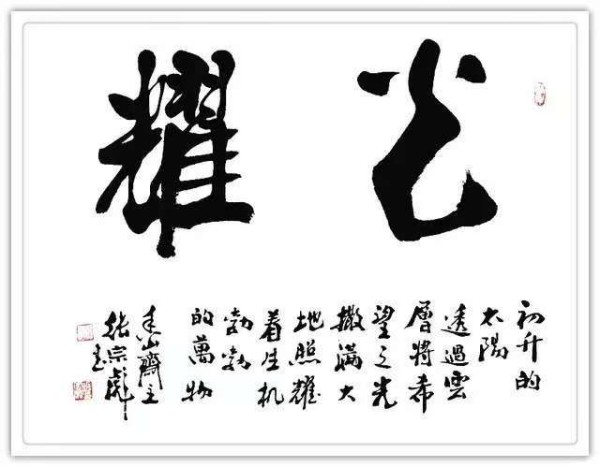 光耀
初升的
太陽
透過雲
層將希
望之光
撒滿大
地照耀
着生机
勃勃
的萬物
山齋主
張宗彪